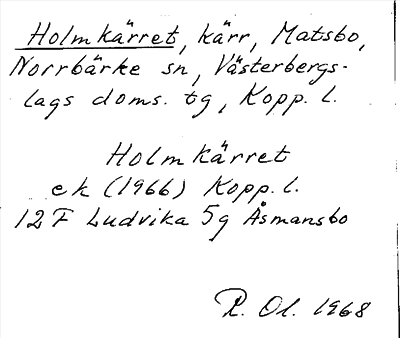 Holmkärret, kärr, Matsbo,
Norrbärke sn, Västerbergs-
lags doms. tg, Kopp. l.
Holmkärret
ek (1966) Kopp. l.
12 F Ludvika 5g Åsmansbo
R. Ol. 1968